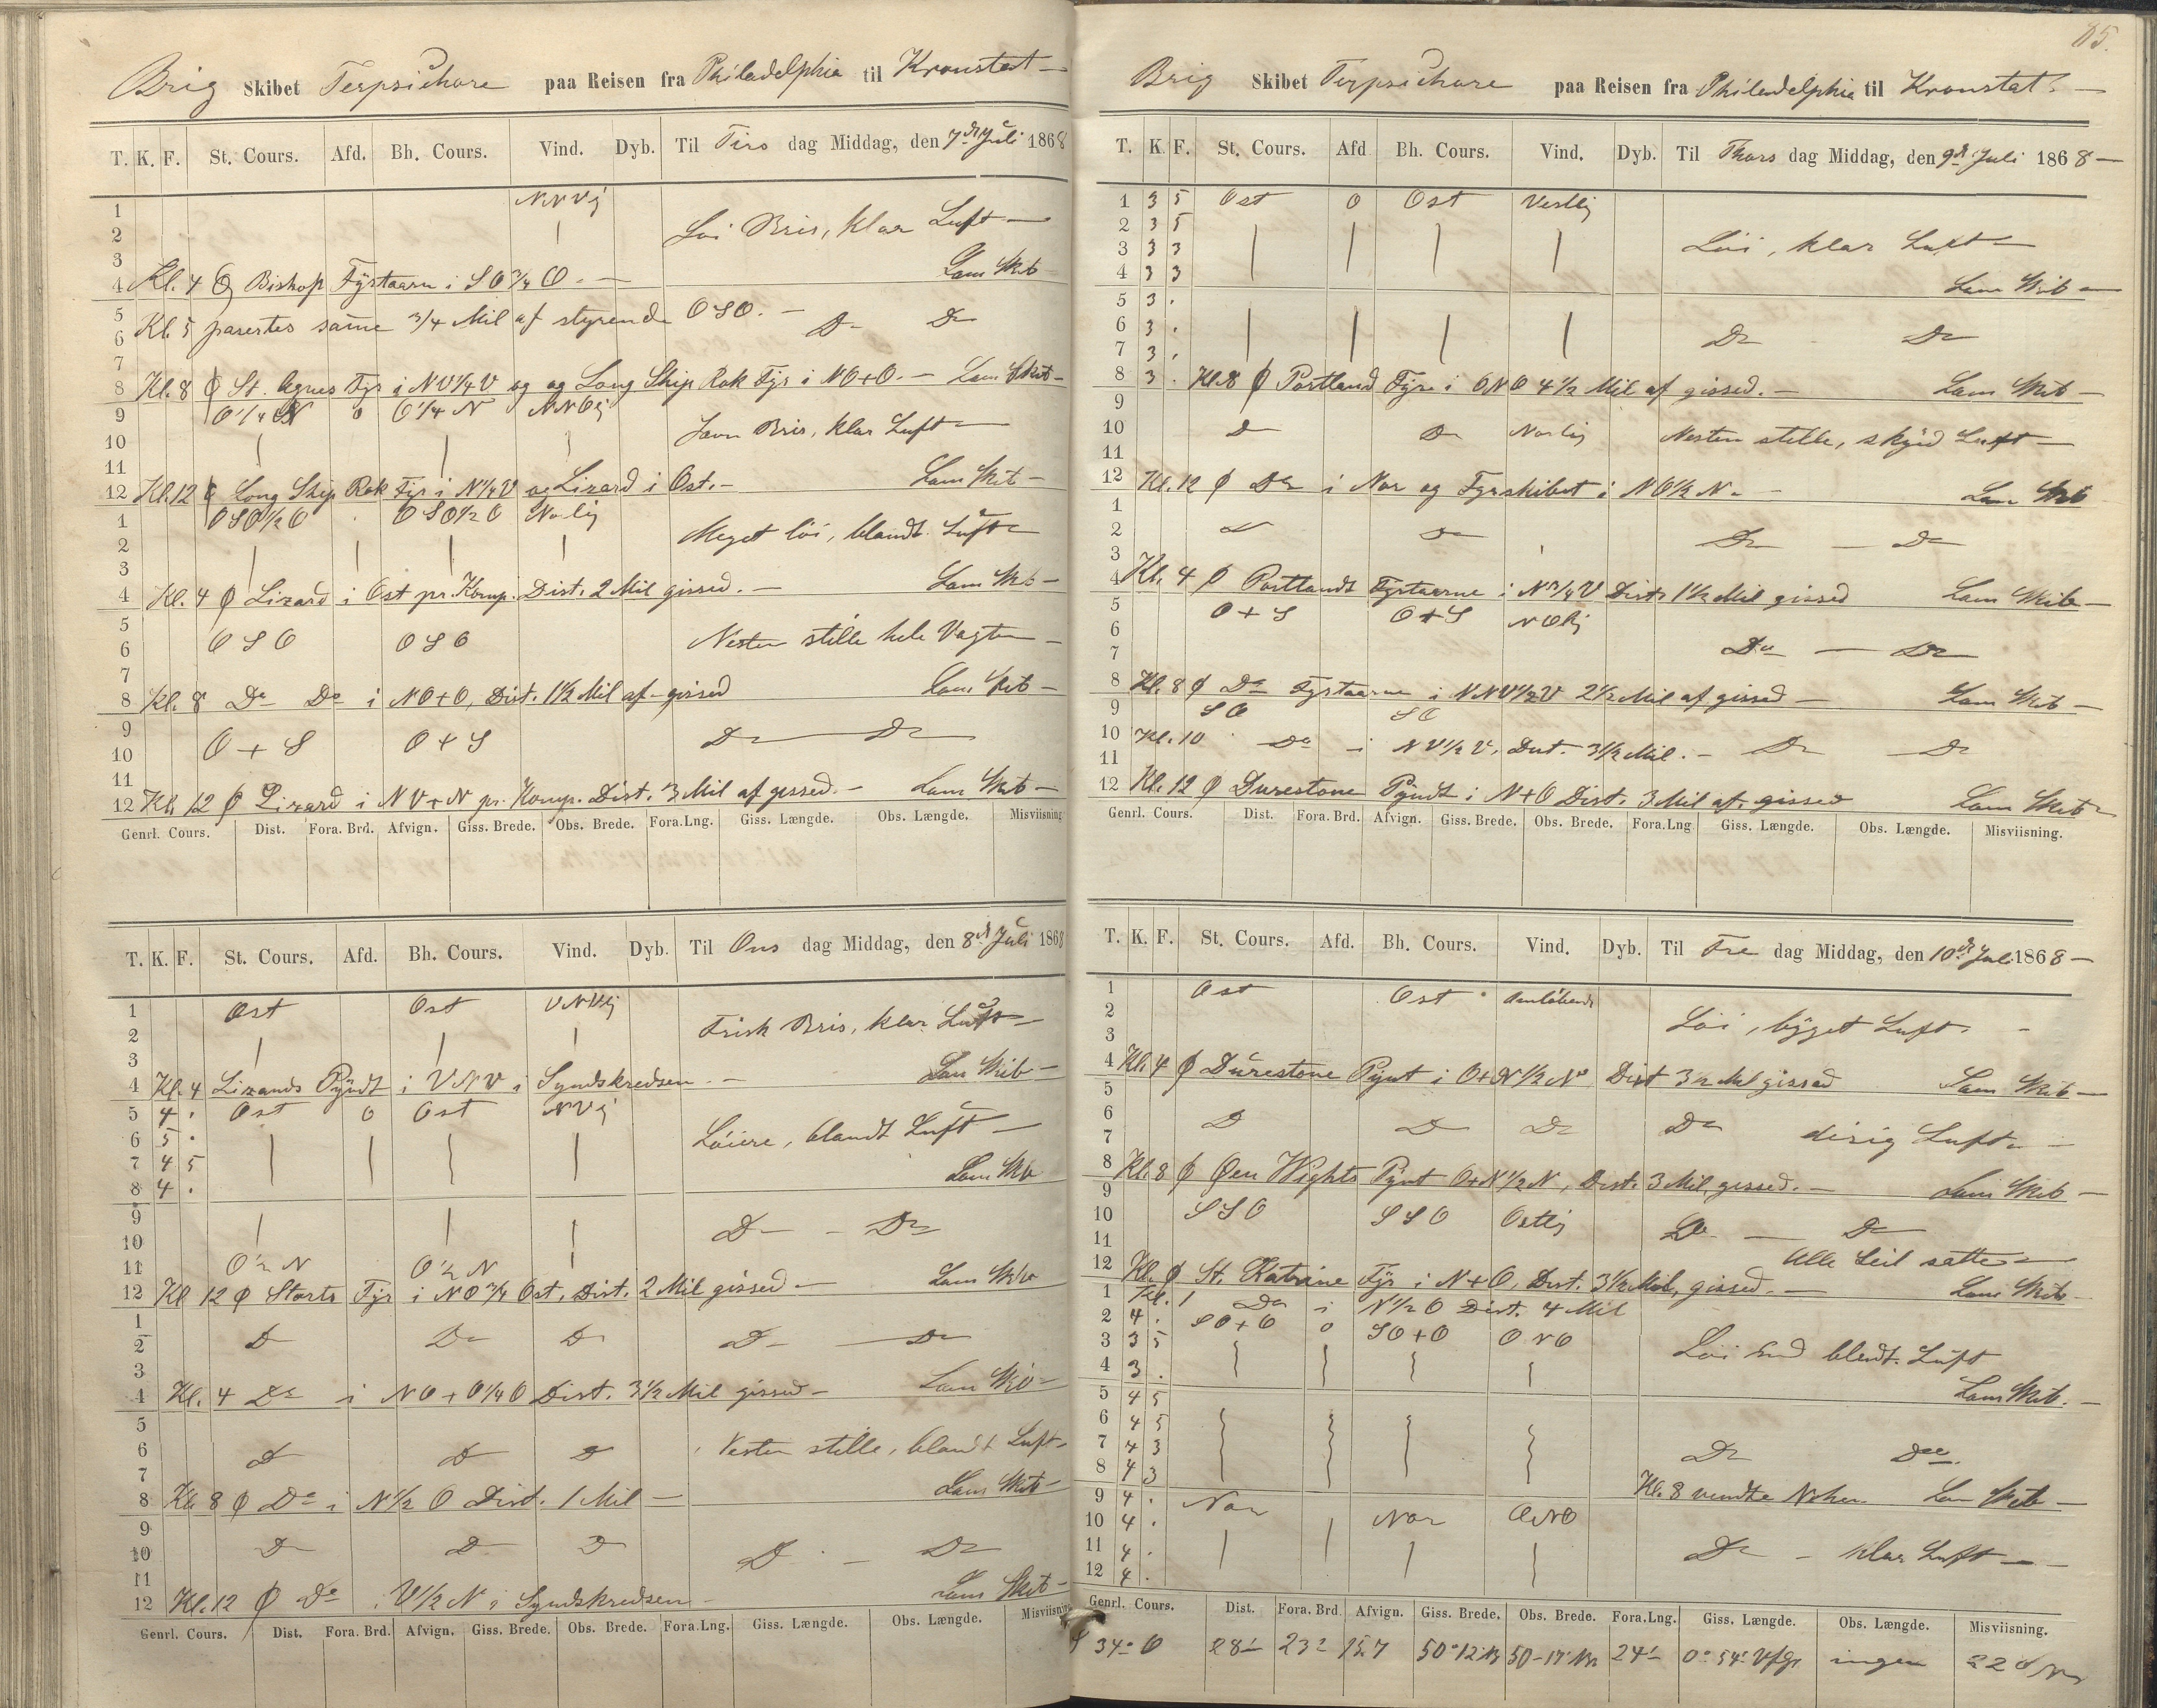 Brig Skibet Terpsichore paa Reisen fra Philadelphia til Kronstat
T. K. F. St. Cours. Afd. Bh. Cours. Vind. Dyb. Til Tirs dag Middag, den 7de Juli 1868
1 NNVlj
2 Løi Bris, klar Luft
3
4 Kl. 4 Ø Bishop Fÿrtaarn i SO 3/4 O. Lens Skib
5 Kl. 5 pasertes same 3/4 Mil af styrende OSO.
6 Do Do
7
8 Kl. 8 Ø St. Agnes Fyr i NV 1/4 V og og Long Ship Rok Fyr i NO+O. Lens Skib
9 O 1/4 N 0 O 1/4 N NNOlj
10 Javn Bris, klar Luft
11
12 Kl. 12 Ø Long Ship Rok Fyr i N 1/4 V og Lizard i Ost. Lens Skib
1 OSO 1/2 O OSO 1/2 O Norlij
2 Meget löi, blandt Luft
3
4 Kl. 4 Ø Lizard i Ost pr. Komp. Dist. 2 Mil gissed. Lens Skib
5
6 OSO OSO Nesten stille hele Vagten
7
8 Kl. 8 Do Do i NO+O, Dist. 1 1/2 Mil af gissed Lens Skib
9
10 O+S O+S Do Do
11
12 Kl. 12 Ø Lizard i NV+N pr. Komp. Dist. 3 Mil af gissed. Lens Skib
Genrl. Cours. Dist. Fora. Brd. Afvign. Giss. Brede. Obs. Brede. Fora.Lng. Giss. Længde. Obs. Længde. Misviisning
T. K. F. St. Cours. Afd. Bh. Cours. Vind. Dyb. Til Ons dag Middag, den 8de Juli 1868
1 Ost Ost VNVlij
2 Frisk Bris, klar Luft
3
4 Kl. 4 Lizards Pÿndt i VNV i Syndskredsen. Lens Skib
5 4 . Ost 0 Ost NVlj
6 5 . Löiere, blandt Luft
7 4 5
8 4 . Lens Skib
9
10 Do Do
11 O 1/2 N O 1/2 N
12 Kl 12 Ø Starts Fyr i NO 3/4 Ost, Dist. 2 Mil gissed Lens Skib
1
2 Do Do Do Do Do
3
4 Kl. 4 Do i NO+O 1/4 O Dist. 3 1/2 Mil gissed Lens Skib
5
6 Do Do Do Nesten stille, blandt Luft
7
8 Kl. 8 Ø Do i N 1/2 O Dist. 1 Mil Lens Skib
9
10 Do Do Do Do Do
11
12 Kl. 12 Ø Do i V 1/2 N i Syndskredsen Lens Skib
Genrl. Cours. Dist. Fora. Brd. Afvign. Giss. Brede. Obs. Brede. Fora.Lng. Giss. Længde. Obs. Længde. Misviisning
85.
Brig Skibet Terpsichore paa Reisen fra Philadelphia til Kronstat
T. K. F. St. Cours. Afd Bh. Cours. Vind. Dyb. Til Thors dag Middag, den 9de Juli 1868
1 3 5 Ost 0 Ost Vestlij
2 3 5
3 3 3 Löi, klar Luft
4 3 3 Lens Skib
5 3 .
6 3 . Do Do
7 3 .
8 3 . Kl. 8 Ø Portland Fÿre i ONO 4 1/2 Mil af gissed. Lens Skib
9
10 Do Do Norlij Nesten stille, skÿed Luft
11
12 Kl. 12 Ø Do i Nor og Fyrskibet i NO 1/2 N. Lens Skib
1
2 Do Do Do Do
3
4 Kl. 4 Ø Portlands Fyrtaarne i N 3/4 V Dist. 1 1/2 Mil gissed Lens Skib
5 O+S O+S NOlij
6
7 Do Do
8 Kl. 8 Ø Do Fyrtaarne i NNV 1/2 V 2 1/2 Mil af gissed Lens Skib
9 SO SO
10 Kl. 10 Do i NV 1/2 V, Dist. 3 1/2 Mil. Do Do
11
12 Kl. 12 Ø Durestone Pÿndt i N+O Dist. 3 Mil af gissed Lens Skib
Genrl. Cours. Dist. Fora. Brd. Afvign. Giss. Brede. Obs. Brede. Fora.Lng Giss. Længde. Obs. Længde. Misviisning.
T. K. F. St. Cours. Afd. Bh. Cours. Vind. Dyb. Til Fre dag Middag, den 10de Juli 1868
1 Ost Ost Omløbende
2
3 Löi, bÿget Luft.
4 Kl. 4 Ø Durestone Pÿnt i O+N 1/2 N Dist 3 1/2 Mil gissed Lens Skib
5
6 Do Do Do Do disig Luft
7
8 Kl. 8 Ø Øen Wights Pÿnt O+N 1/2 N, Dist. 3 Mil, gissed. Lens Skib
9
10 SSO SSO Ostlij Do Do
11 Alle Seil satte
12 Kl. Ø St. Katrine Fÿr i N+O, Dist. 3 1/2 Mil, gissed. Lens Skib
1 Kl. 1 Do i N 1/2 O Dist. 4 Mil
2 4 . SO+O 0 SO+O ONO
3 3 5 Löi blandt Luft
4 3 . Lens Skib.
5 4 5
6 4 5
7 4 3 Do Do
8 4 3 Kl. 8 vendte Lens Skib
9 4 . Nor
10 4 . Nor ONO
11 4 . Do klar Luft
12 4 .
Genrl. Cours. Dist. Fora. Brd. Afvign. Giss. Brede. Obs. Brede. Fora.Lng. Giss. Længde. Obs. Længde. Misviisning.
S 34° O 28' 23' 15.7 50°12' N 50-17' N 24' 0° 54' Vfgr ingen